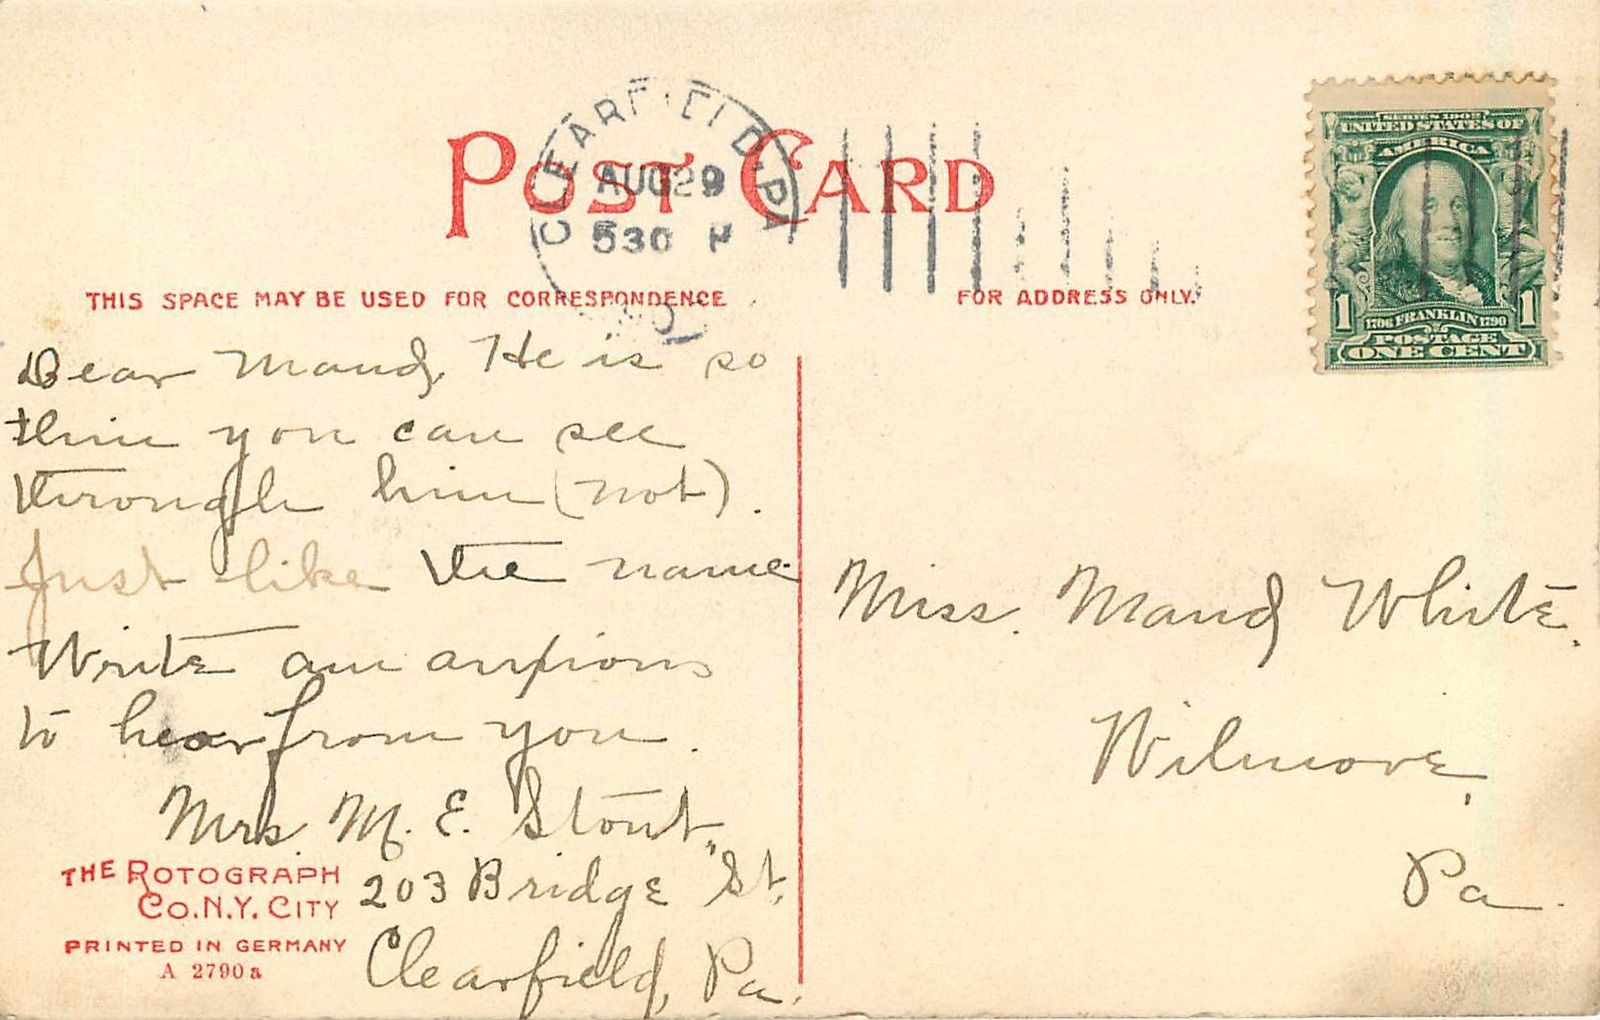 POST CARD
CLEARFIELD, PA
AUG 29
530 P
SERIES 1902
UNITED STATES OF
AMERICA
1 1
1706 FRANKLIN 1790
POSTAGE
ONE CENT
THIS SPACE MAY BE USED FOR CORRESPONDENCE
FOR ADDRESS ONLY.
Dear Maud, He is so
thin you can see
through him (not).
Just like the name
Write am anxious
to hear from you.
Mrs. M. E. Stout,
203 Bridge St.
Clearfield, Pa.
Miss. Maud White.
Wilmore,
Pa.
THE ROTOGRAPH
CO. N.Y. CITY
PRINTED IN GERMANY
A 2790a